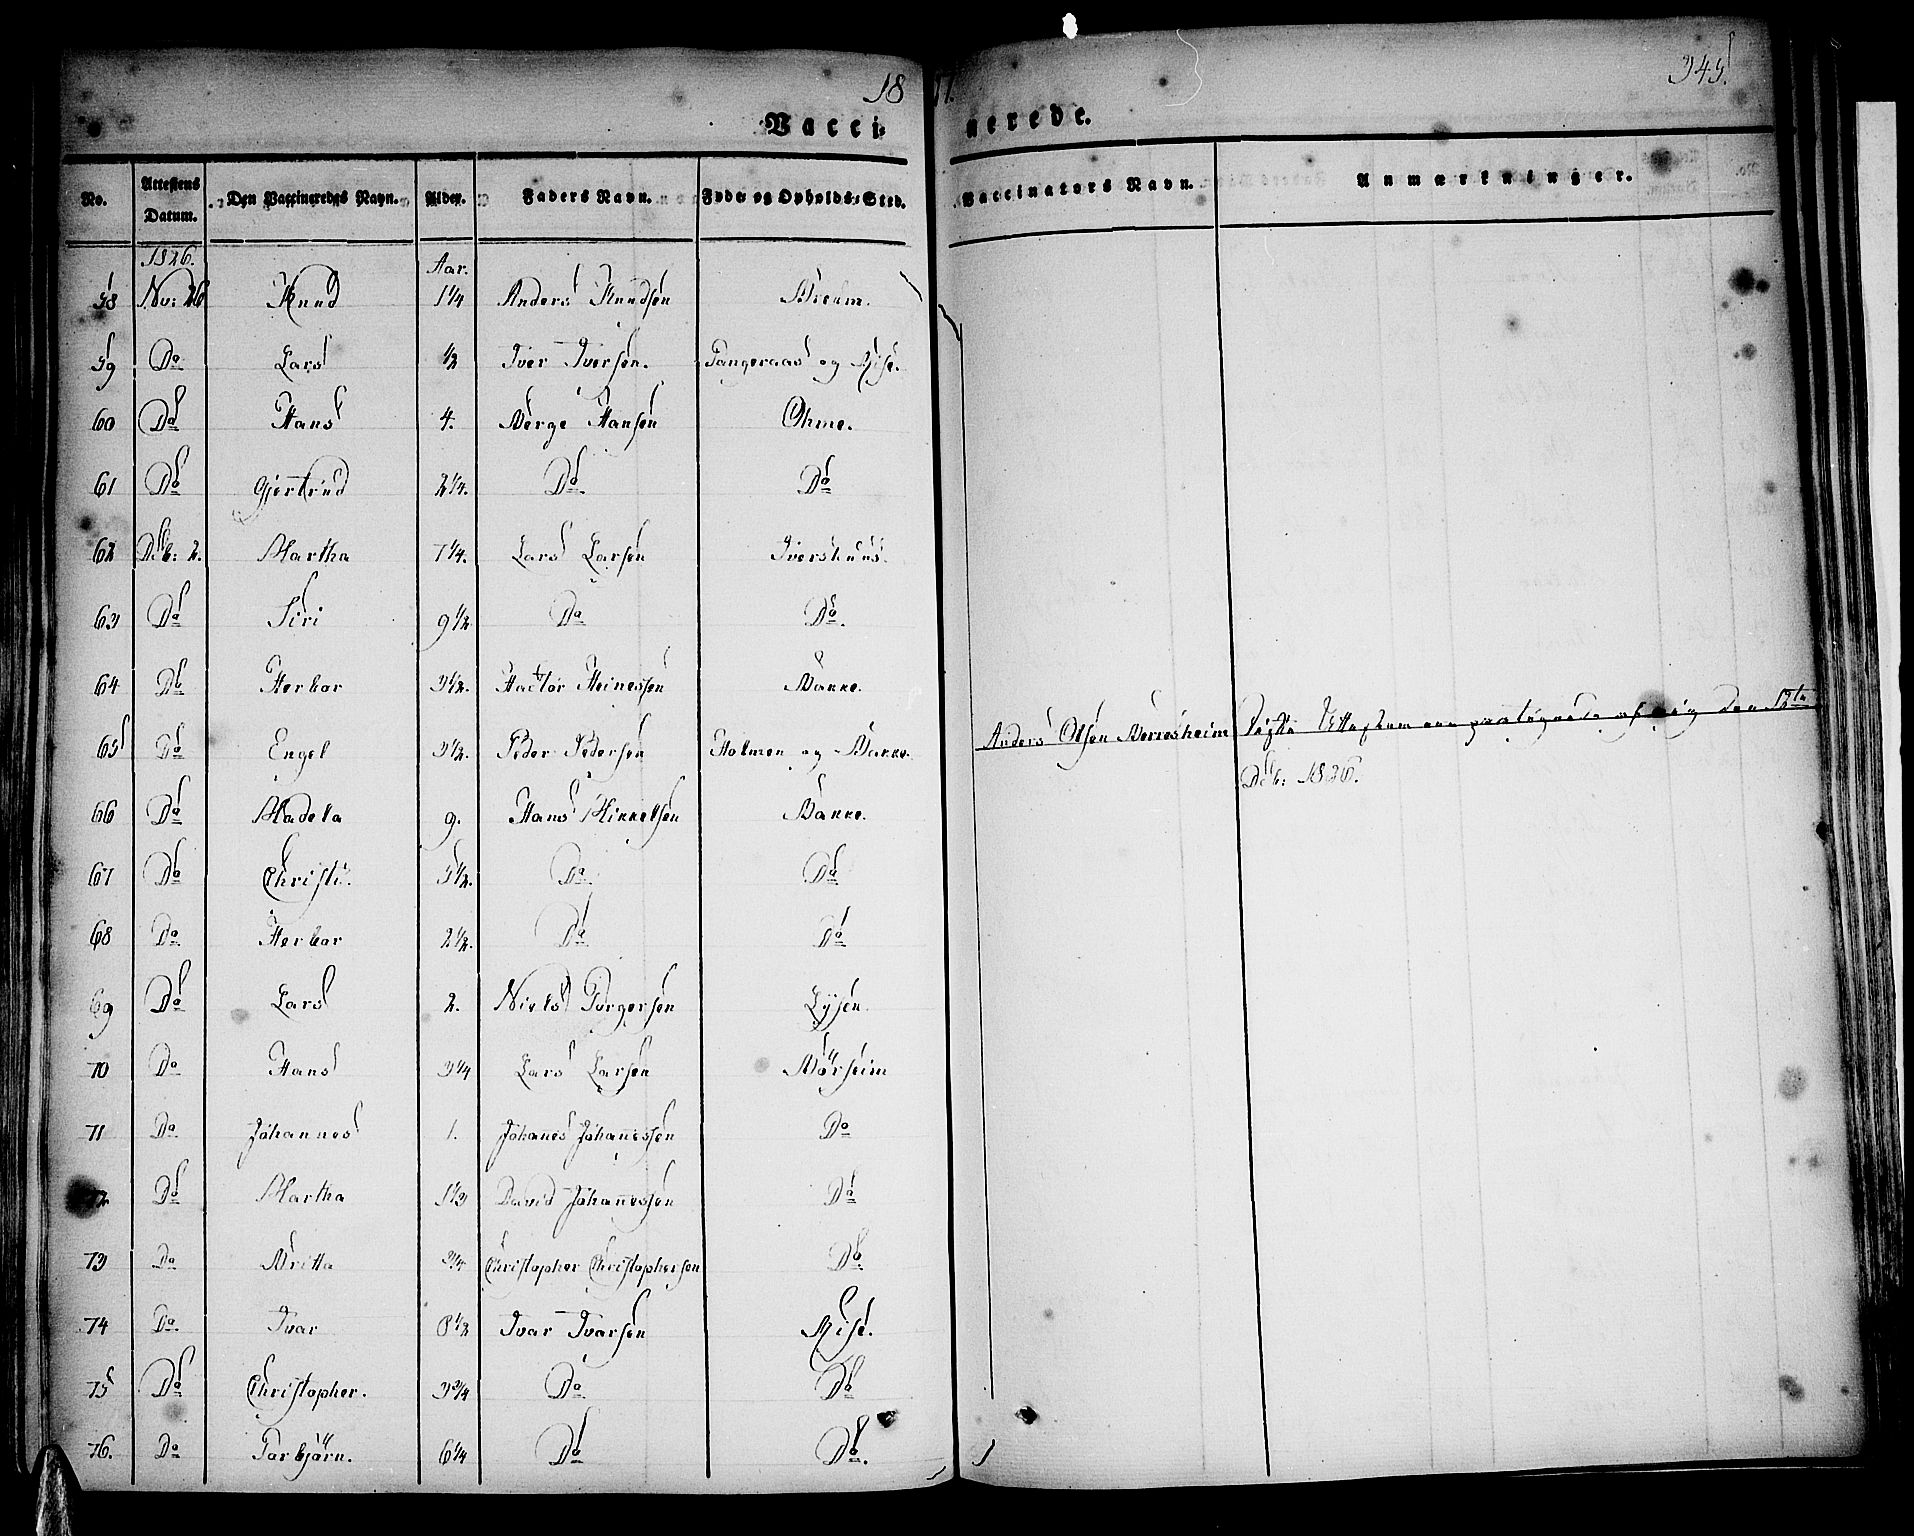 18
345.
Vacci-
nerede.
No. Attestens Datum. Den Vaccineredes Navn. Alder. Faders Navn. Føde og Opholds-Sted. Vaccinators Navn. Anmærkninger.
1826. Aar.
58 Nov: 26 Knud 1 1/4 Anders Knudsen
59 Do Lars 1/2 Iver Iversen. Tangeraas og Rise.
60 Do Hans 4. Børge Hansen Ohme.
61 Do Gjertrud 2 1/4. Do. Do
62 Deb: 2. Martha 7 1/4. Lars Larsen Ivershuus.
63 Do Siri 9 1/2 Do Do.
64 Do Herbor 3 1/2. Hactor Heinessen Bakke.
65 Do Engel 3 1/2. Peder Pedersen Holmen og Bakke. Anders Olsen Berresheim
den 12te
Deb: 1826.
66 Do Madela 9. Hans Mikkelsen Bakke.
67 Do Christi. 5 1/2. Do Do
68 Do Herbor 2 1/2. Do Do
69 Do Lars 2. Niels Torgersen Lysen.
70 Do Hans 3 1/4 Lars Larsen Børseim
71 Do Johannes 1. Johanes Johanessen Do
72 Do Martha 1 1/3 David Johanessen Do
73 Do Britta 3/4 Christopher Christophersen Do.
74 Do. Ivar 8 1/2 Ivar Ivarsen Rise.
75 Do Christopher. 3 3/4 Do Do
76. Do Torbjørn. 6 1/4 Do Do.